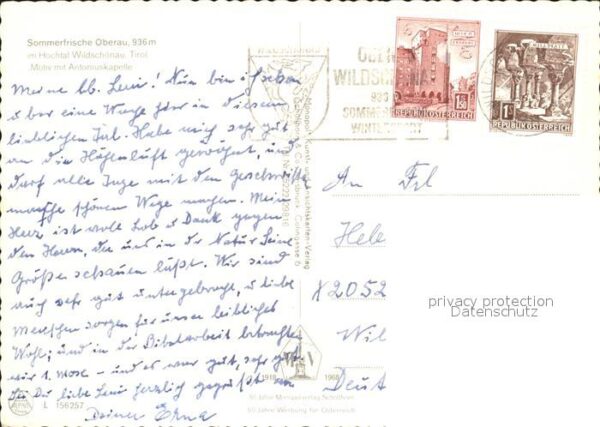 Sommerfrische Oberau, 936 m
im Hochtal Wildschönau, Tirol
Motiv mit Antoniuskapelle
Meine lb. Leni! Nun bin ich schon
über eine Woche hier in diesem
lieblichen Tal. Habe mich sehr gut
an die Höhenluft gewöhnt, und
darf alle Tage mit den Geschwistern
manche schönen Wege machen. Mein
Herz ist voll Lob u Dank gegen
den Herrn, der uns in der Natur Seine
Größe schauen läßt. Wir sind
auch sehr gut untergebracht, u liebe
Menschen sorgen für unser leibliches
Wohl; und in der Bibelarbeit betrachten
wir 1. Mose - und es war gut, sehr gut
Sei Du liebe Leni herzlich gegrüßt von
Deiner Erna
L 156257
WILDSCHÖNAU
WILDSCHÖNAU
936
WINTER
1.50
REPUBLIK ÖSTERREICH
MILLSTATT
1S
REPUBLIK ÖSTERREICH
An Frl
Hele
X2052
Wil
Deut
1918 1968
50 Jahre Werbung für Österreich
privacy protection
Datenschutz